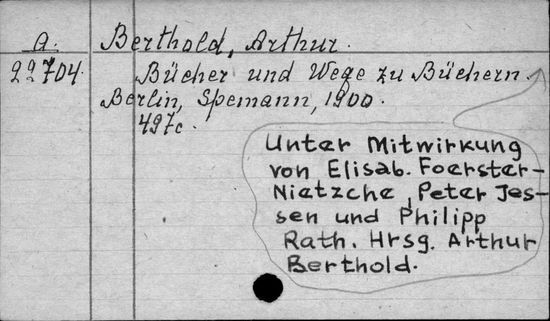 A. Berthold, Arthur.
22704. Bücher und Wege zu Büchern.
Berlin, Spemann, 1900.
497c.
Unter Mitwirkung
von Elisab. Foerster-
Nietzche, Peter Jes-
sen und Philipp
Rath. Hrsg. Arthur
Berthold.